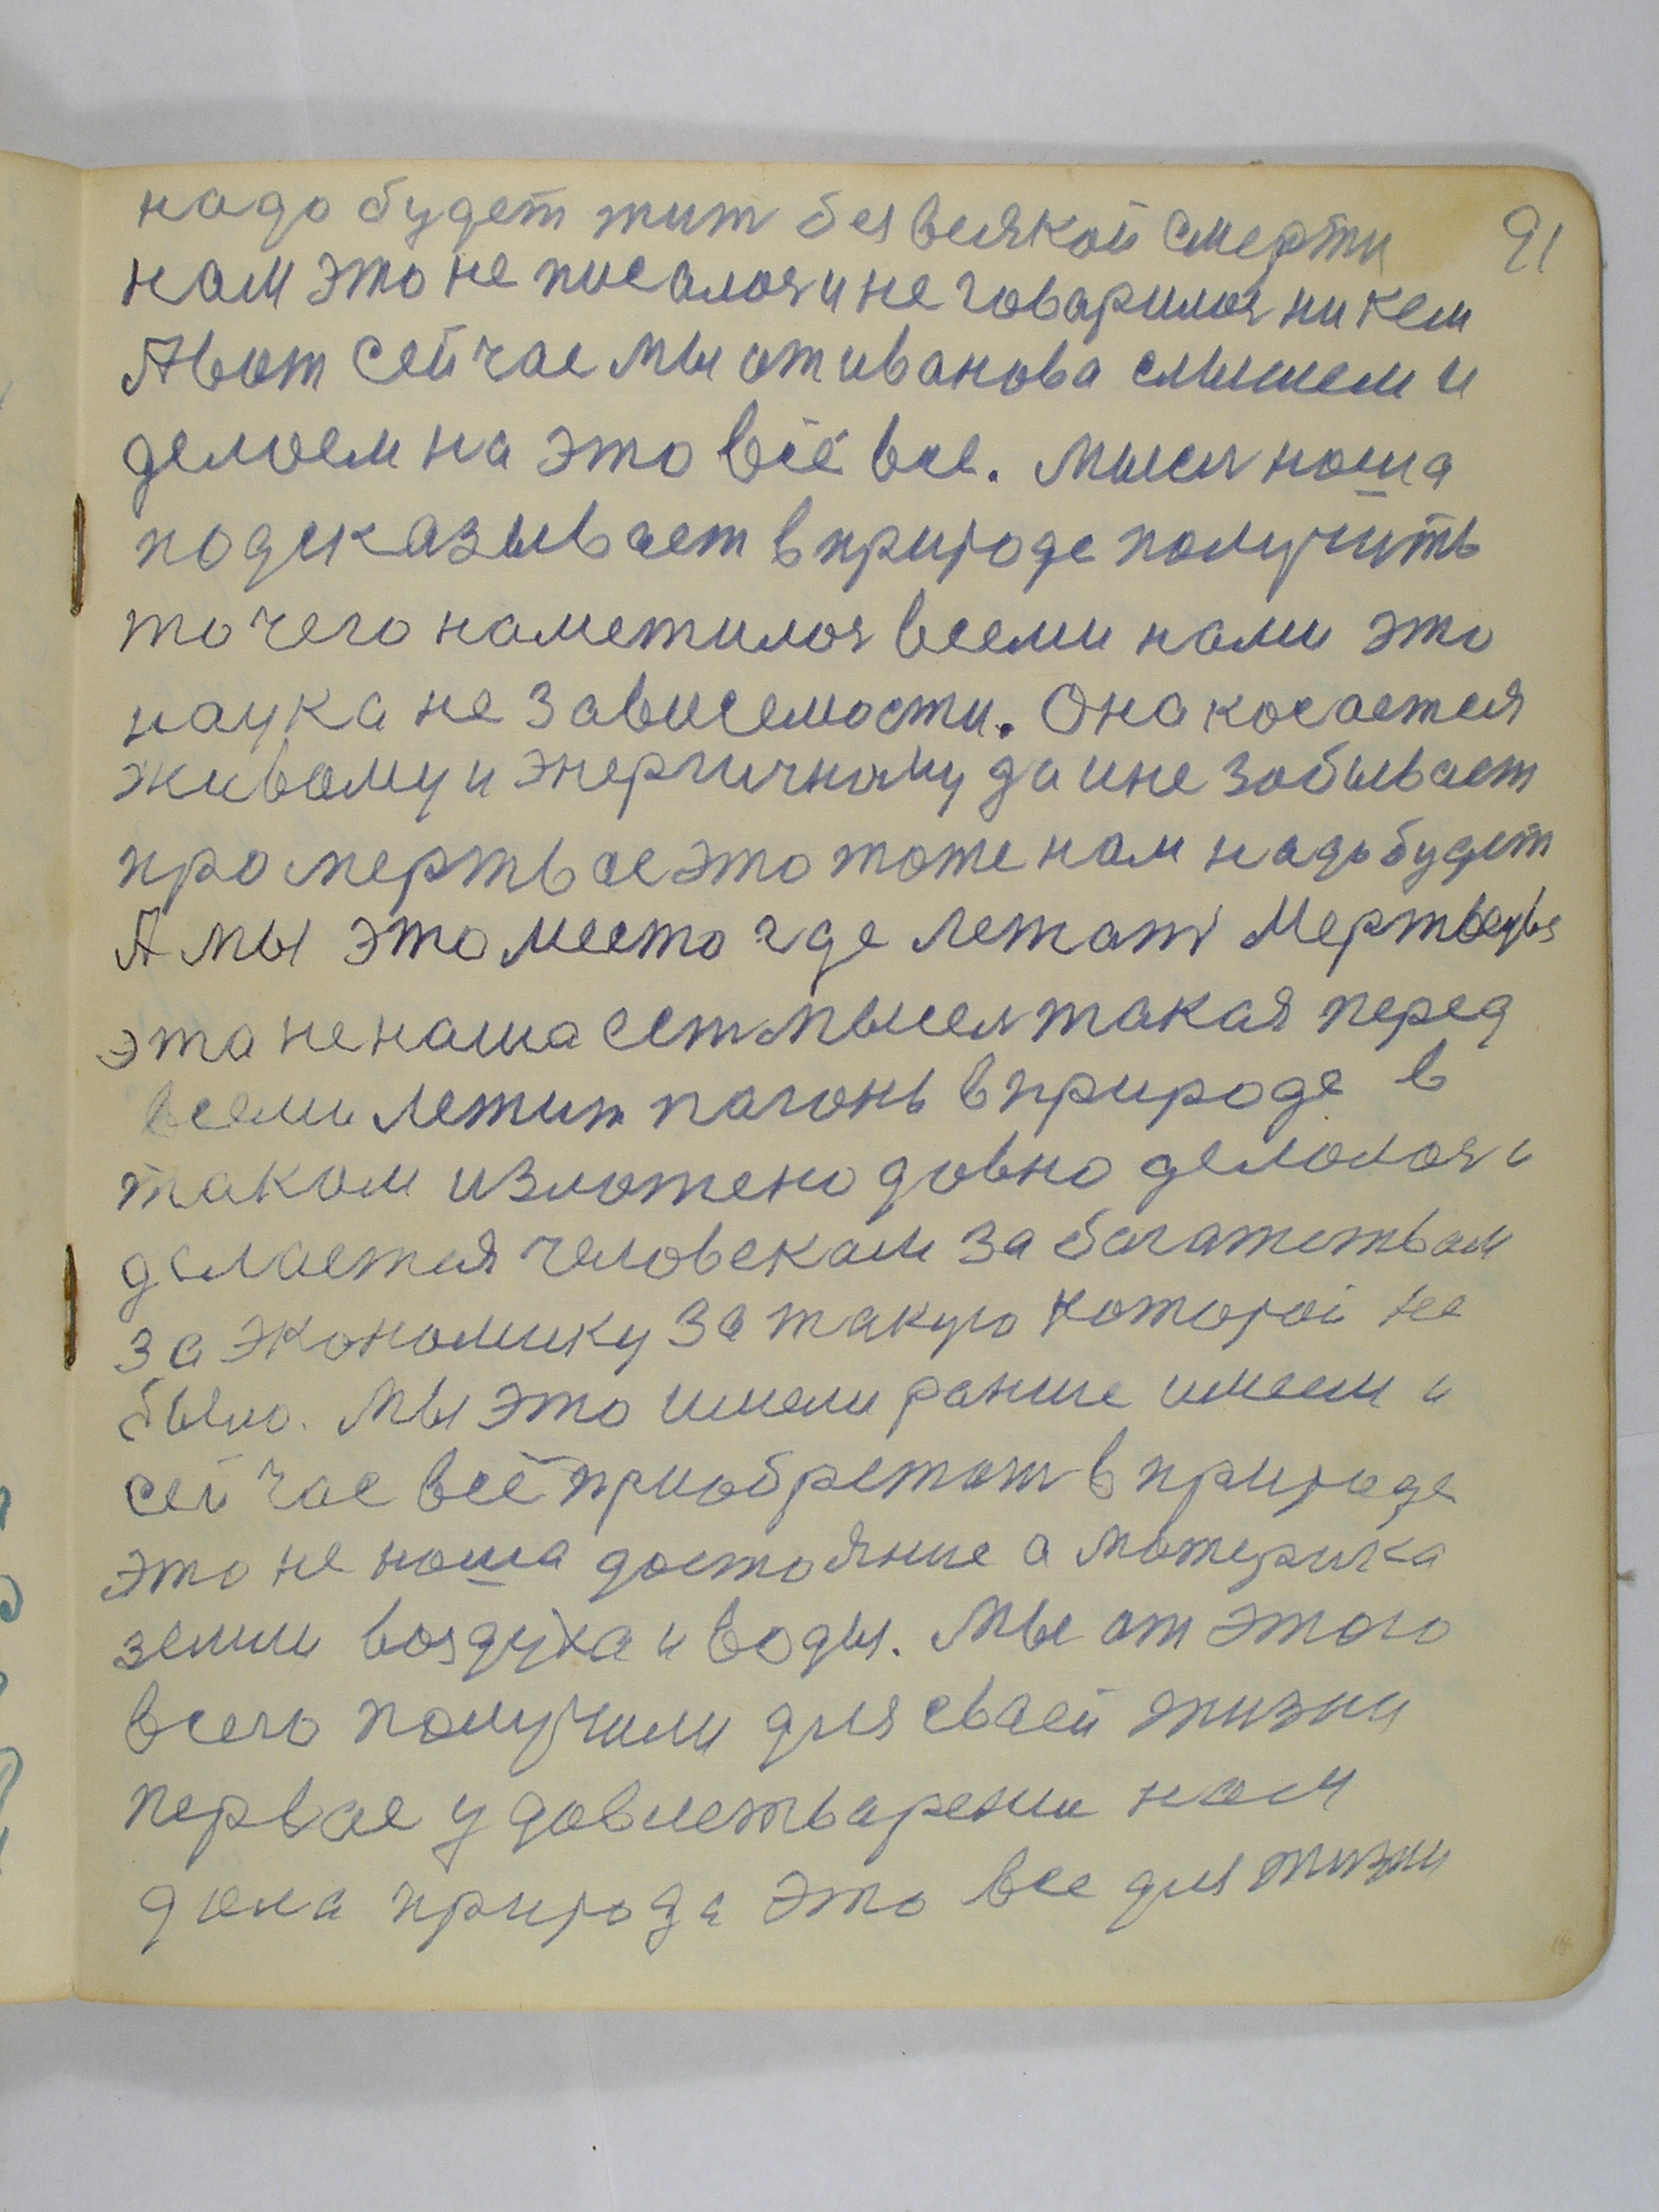 надо будет жит без всякой смерти 91
нам это не писалося и не говарилося ни кем
А вот сейчас мы от иванова слышем и
делоем на это всё все. Мысля наша
подсказывает в природе получить
то чего наметилося всеми нами это
наука не зависемости. Она косается
живому и энергичному да и не забывает
про мертвое это тоже нам надо будет
А мы это место где лежат Мертвецы
эта не наша ест мысел такая перед
всеми лежит пагонь в природе в
таком изложено довно делолося и
делается человекам за багатством
за экономику за такую которой не
было. Мы это имели ранше имеем и
сейчас всё приобретают в природе
это не наша достояние а материка
земли воздуха и воды. Мы от этого
всего получили для сваей жизни
первое удовлетварении нам
дала природа это все для жизни